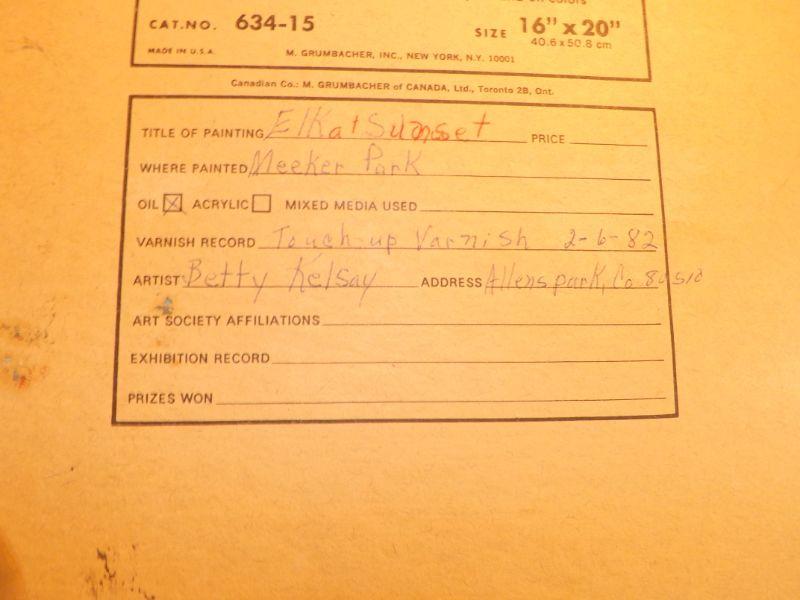 on colors
CAT.NO. 634-15 SIZE 16" x 20"
40.6 x 50.8 cm
MADE IN U.S.A. M. GRUMBACHER, INC., NEW YORK, N.Y. 10001
Canadian Co.: M. GRUMBACHER of CANADA, Ltd., Toronto 2B, Ont.
TITLE OF PAINTING Elk at Sunset PRICE
WHERE PAINTED Meeker Park
OIL ☒ ACRYLIC ☐ MIXED MEDIA USED
VARNISH RECORD Touch-up Varnish 2-6-82
ARTIST Betty Kelsay ADDRESS Allenspark, Co 80510
ART SOCIETY AFFILIATIONS
EXHIBITION RECORD
PRIZES WON